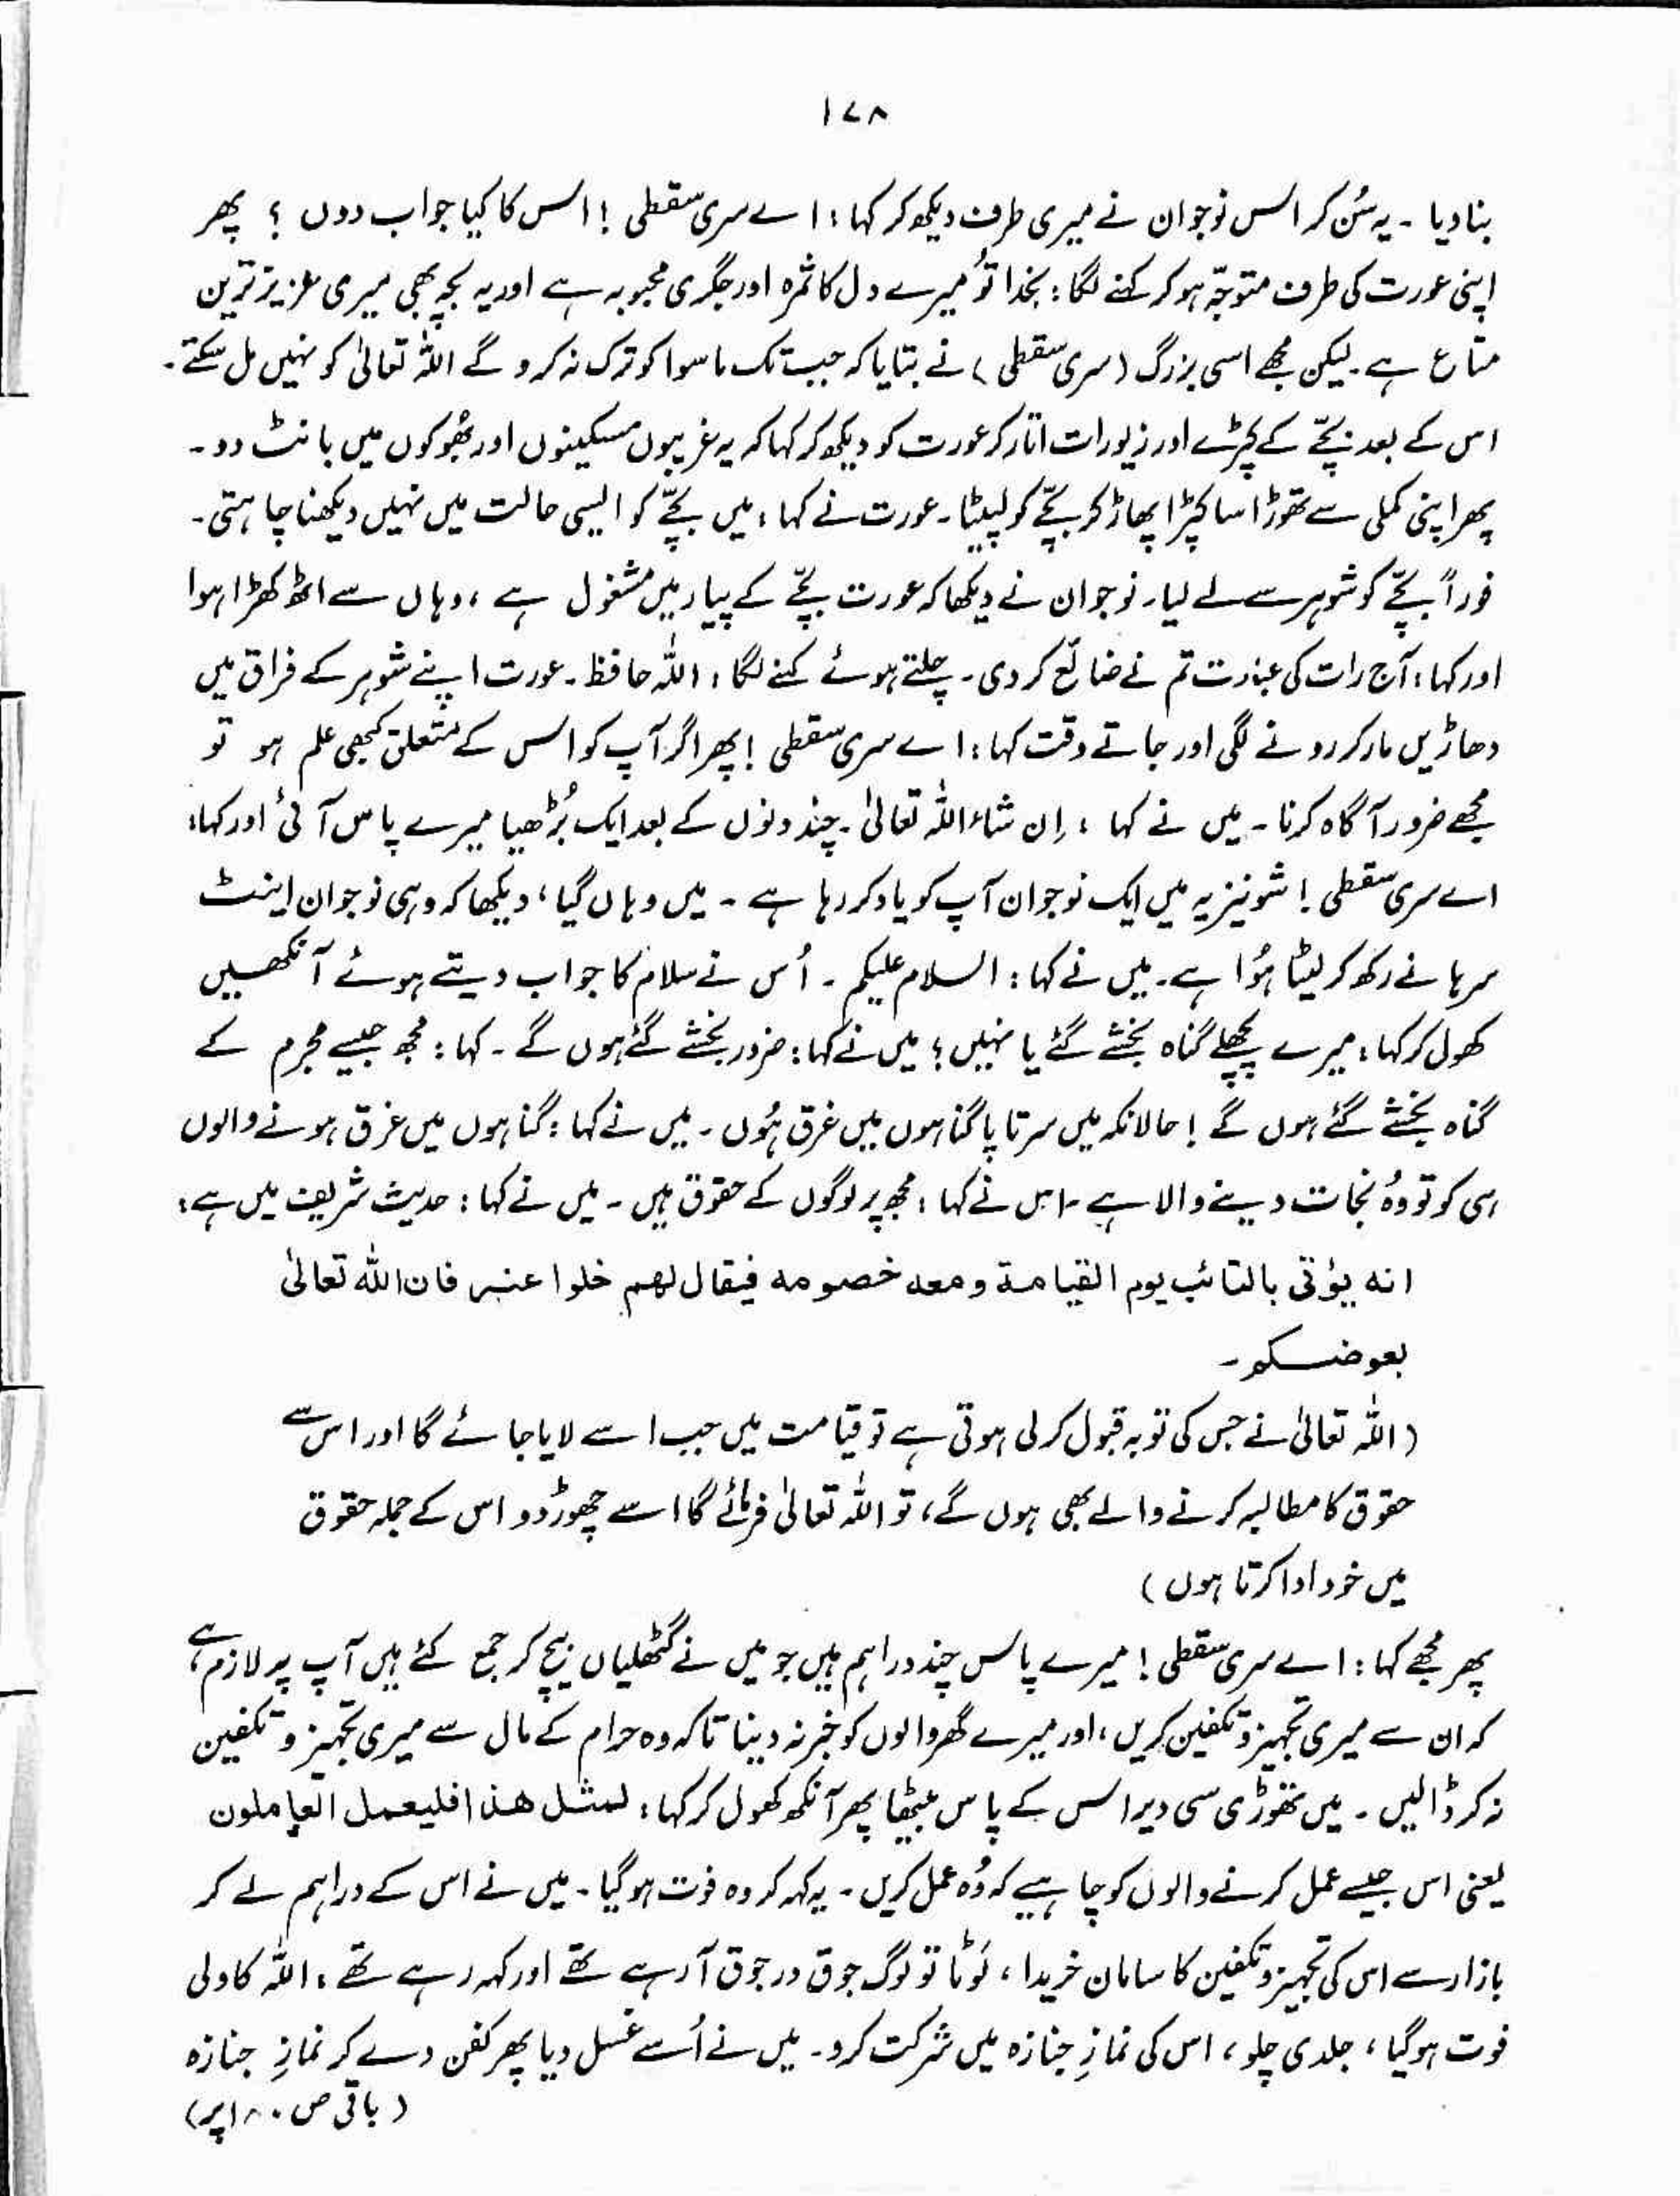 ۱۷۸
بنا دیا ۔ یہ سُن کر اس نوجوان نے میری طرف دیکھ کر کہا : اے سری سقطی ! اس کا کیا جواب دوں ؟ پھر
اپنی عورت کی طرف متوجّہ ہو کر کہنے لگا : بخدا تُو میرے دل کا ثمرہ اور جگری محبوبہ ہے اور یہ بچہ بھی میری عزیز ترین
متاع ہے ۔ لیکن مجھے اسی بزرگ (سری سقطی) نے بتایا کہ جب تک ماسوا کو ترک نہ کرو گے اللہ تعالیٰ کو نہیں مل سکتے ۔
اس کے بعد بچّے کے کپڑے اور زیورات اتار کر عورت کو دیکھ کر کہا کہ یہ غریبوں مسکینوں اور بھُوکوں میں بانٹ دو ۔
پھر اپنی کملی سے تھوڑا سا کپڑا پھاڑ کر بچّے کو لپیٹا ۔ عورت نے کہا : میں بچّے کو ایسی حالت میں نہیں دیکھنا چاہتی ۔
فوراً بچّے کو شوہر سے لے لیا ۔ نوجوان نے دیکھا کہ عورت بچّے کے پیار میں مشغول ہے ، وہاں سے اٹھ کھڑا ہوا
اور کہا : آج رات کی عبادت تم نے ضائع کر دی ۔ چلتے ہوئے کہنے لگا : اللہ حافظ ۔ عورت اپنے شوہر کے فراق میں
دھاڑیں مار کر رونے لگی اور جاتے وقت کہا : اے سری سقطی ! پھر اگر آپ کو اس کے متعلق کبھی علم ہو تو
مجھے ضرور آگاہ کرنا ۔ میں نے کہا : اِن شاء اللہ تعالیٰ ۔ چند دنوں کے بعد ایک بُڑھیا میرے پاس آئی اور کہا :
اے سری سقطی ! شونیزیہ میں ایک نوجوان آپ کو یاد کر رہا ہے ۔ میں وہاں گیا ، دیکھا کہ وہی نوجوان اینٹ
سرہانے رکھ کر لیٹا ہُوا ہے ۔ میں نے کہا : السلام علیکم ۔ اُس نے سلام کا جواب دیتے ہوئے آنکھیں
کھول کر کہا : میرے پچھلے گناہ بخشے گئے یا نہیں ؟ میں نے کہا : ضرور بخشے گئے ہوں گے ۔ کہا : مجھ جیسے مجرم کے
گناہ بخشے گئے ہوں گے ! حالانکہ میں سرتا پا گناہوں میں غرق ہُوں ۔ میں نے کہا : گناہوں میں غرق ہونے والوں
ہی کو تو وُہ نجات دینے والا ہے ۔ اس نے کہا : مجھ پر لوگوں کے حقوق ہیں ۔ میں نے کہا : حدیث شریف میں ہے :
انه يؤتى بالتائب يوم القيامة ومعه خصومه فيقال لهم خلوا عنه فان الله تعالىٰ
بعوضكم ۔
(اللہ تعالیٰ نے جس کی توبہ قبول کر لی ہوتی ہے تو قیامت میں جب اسے لایا جائے گا اور اس سے
حقوق کا مطالبہ کرنے والے بھی ہوں گے ، تو اللہ تعالیٰ فرمائے گا اسے چھوڑ دو اس کے جملہ حقوق
میں خود ادا کرتا ہوں )
پھر مجھے کہا : اے سری سقطی ! میرے پاس چند دراہم ہیں جو میں نے گٹھلیاں بیچ کر جمع کئے ہیں آپ پر لازم ہے
کہ ان سے میری تجہیز و تکفین کریں ، اور میرے گھر والوں کو خبر نہ دینا تاکہ وہ حرام کے مال سے میری تجہیز و تکفین
نہ کر ڈالیں ۔ میں تھوڑی سی دیر اس کے پاس بیٹھا پھر آنکھ کھول کر کہا : لمثل هذا فليعمل العاملون
یعنی اس جیسے عمل کرنے والوں کو چاہیے کہ وُہ عمل کریں ۔ یہ کہہ کر وہ فوت ہو گیا ۔ میں نے اس کے دراہم لے کر
بازار سے اس کی تجہیز و تکفین کا سامان خریدا ، لَوٹا تو لوگ جوق در جوق آ رہے تھے اور کہہ رہے تھے : اللہ کا ولی
فوت ہو گیا ، جلدی چلو ، اس کی نمازِ جنازہ میں شرکت کرو ۔ میں نے اُسے غسل دیا پھر کفن دے کر نمازِ جنازہ
(باقی ص ۱۸۰ پر)